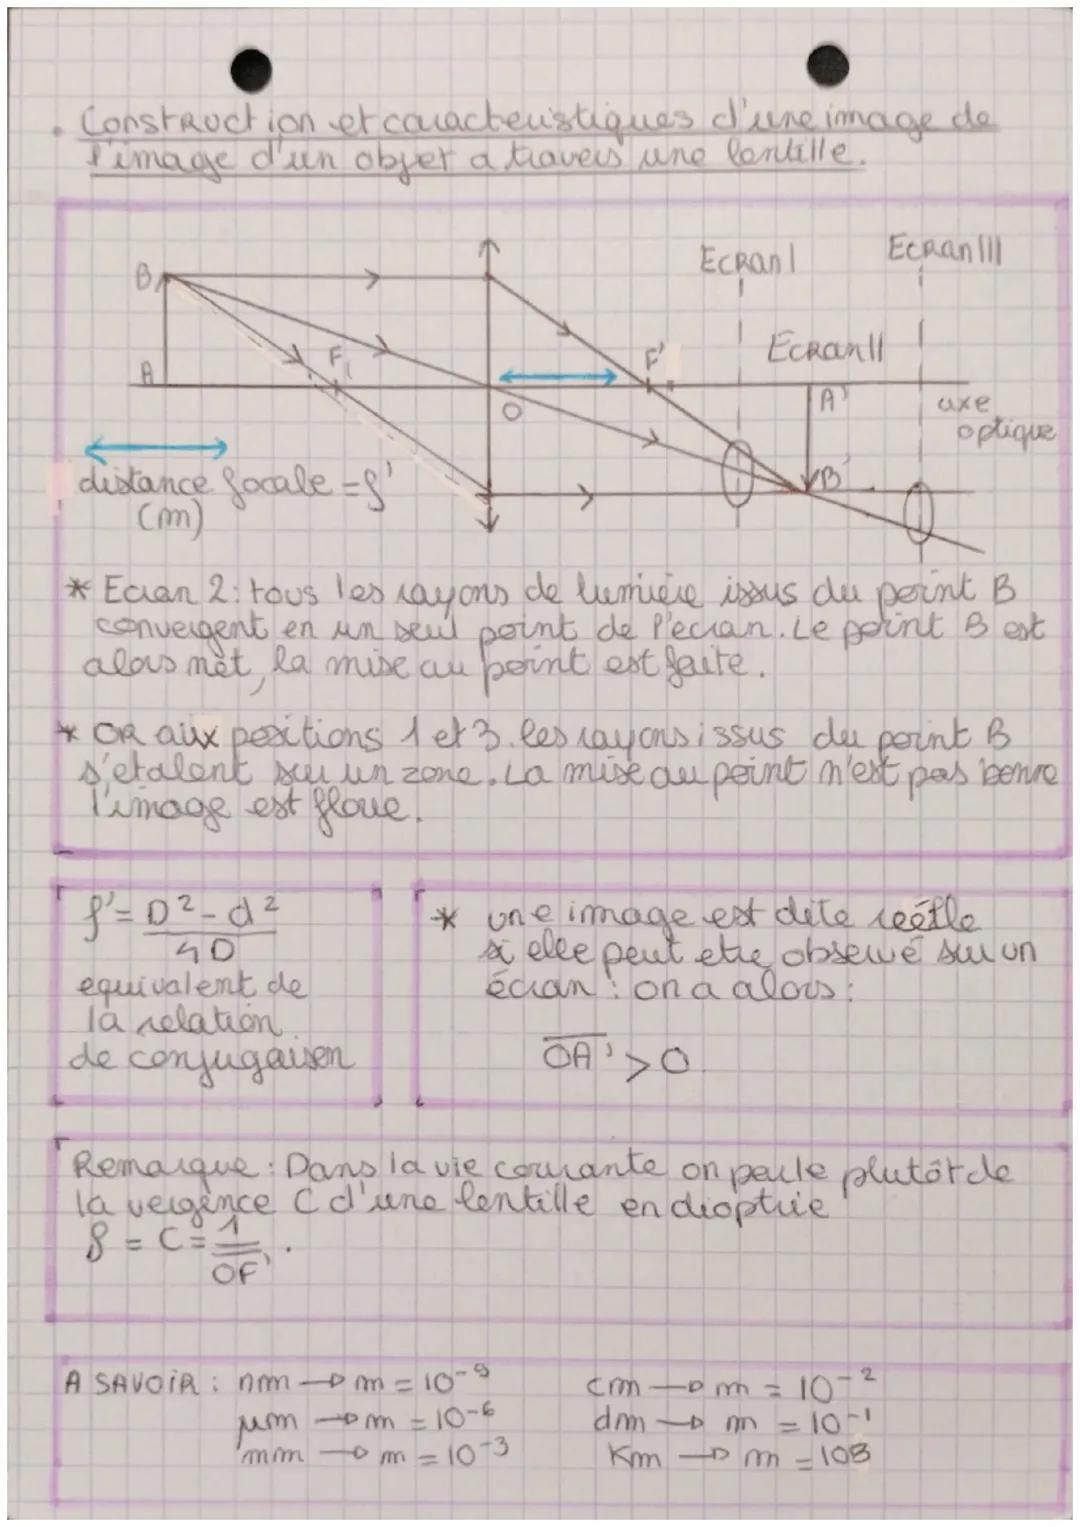 Construction et caracteristiques d'une image de
l'image d'un objet a travers une lentille.
Ecran I
Ecran III
B
Ecran II
F'
F1
A
A'
O
axe
optique
distance focale = f'
(m)
B'
* Ecran 2 : tous les rayons de lumière issus du point B
convergent en un seul point de l'ecran. Le point B est
alors net, la mise au point est faite.
* OR aux positions 1 et 3. les rayons issus du point B
s'etalent sur un zone. La mise au point n'est pas bonne
l'image est floue.
f' = D² - d²
4D
equivalent de
la relation
de conjugaison
* une image est dite réelle
si elle peut etre observé sur un
écran : on a alors :
OA' > 0
Remarque : Dans la vie courante on parle plutôt de
la vergence C d'une lentille en dioptrie
δ = C = 1
OF' .
A SAVOIR : nm → m = 10⁻⁹
cm → m = 10⁻²
µm → m = 10⁻⁶
dm → m = 10⁻¹
mm → m = 10⁻³
Km → m = 10³